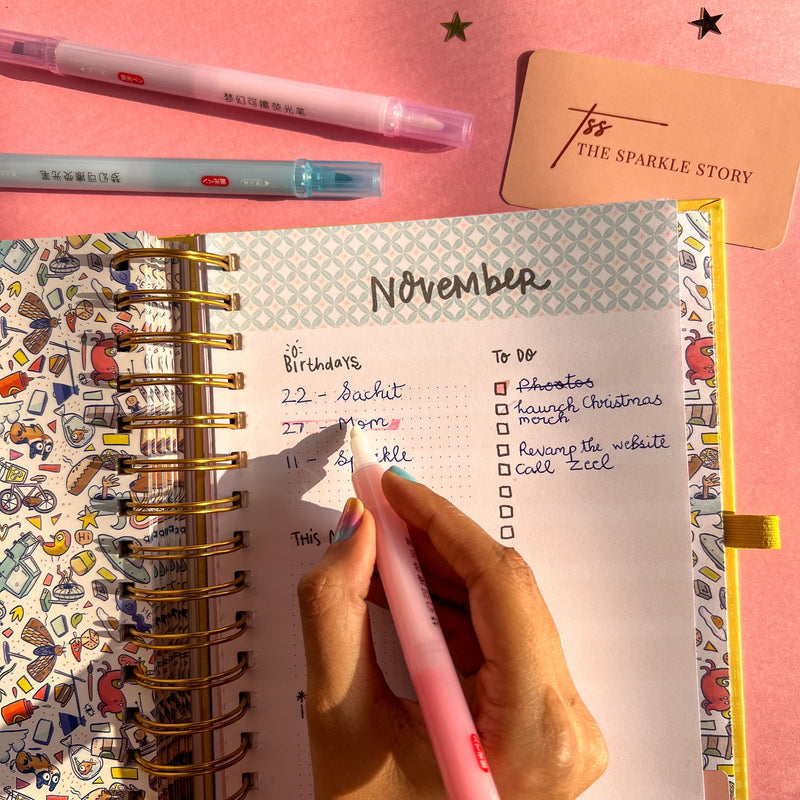 梦幻可擦荧光笔
蛍光ペン
梦幻可擦荧光笔
蛍光ペン
Tss
THE SPARKLE STORY
November
Birthdays
22 - Sachit
27 - Mom
11 -
To Do
Photos
Launch Christmas
merch
Revamp the website
Call Zeel
THIS
Hi